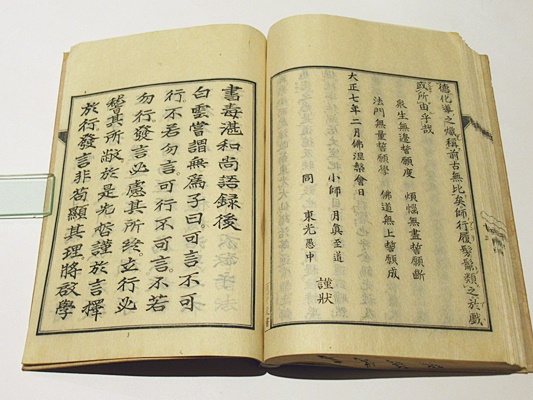 德化導之熾稱前古無比矣師行履髣髴類之於戲
或所由乎哉
衆生無邊誓願度 煩惱無盡誓願斷
法門無量誓願學 佛道無上誓願成
大正七年二月佛涅槃會日
小師 月眞至道
同 東光愚中
謹狀
書毒湛和尚語録後
白雲嘗謂無爲子曰。可言不可
行不若勿言。可行不可言。不若
勿行。發言必慮其所終。立行必
稽其所敝。於是先哲謹於言。擇
於行。發言非苟顯其理。將啟學